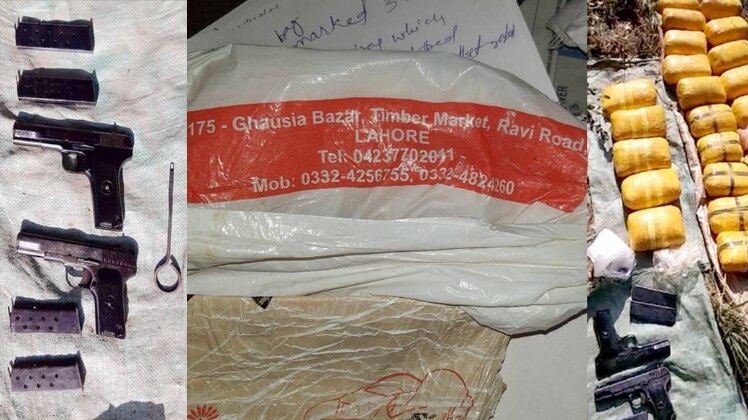 marked 3
which
175 - Ghausia Bazar, Timber Market, Ravi Road,
LAHORE
Tel: 04237702011
Mob: 0332-4256755, 0332-4824260